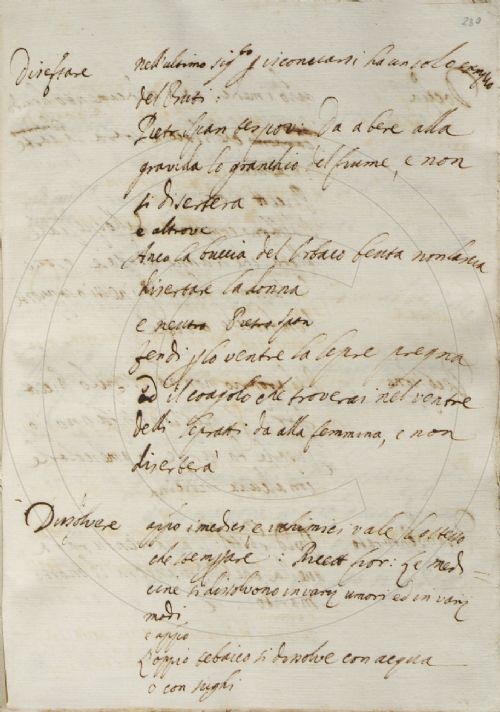 230
Disertare nell'ultimo sig.to p isconciarsi ha un solo esempio
del Buti:
Pietr: Span: tespov: Da a bere alla
gravida lo granchio del fiume, e non
si diserterà
e altrove
Anco la buccia del Orbaco beuta non lascia
disertare la donna
e neutro Pietro Span
fendi p lo ventre la lepre pregna
Ed il coagolo che troverai nel ventre
delli lepratti da alla femmina, e non
diserterà
Dissolvere appo i medici e i chimici vale lo stesso
che stemprare: Ricett: fior: Le medi=
cine si dissolvono in varij umori ed in varij
modi
e appo
L'oppio tebaico si dissolve con acqua
o con sughi